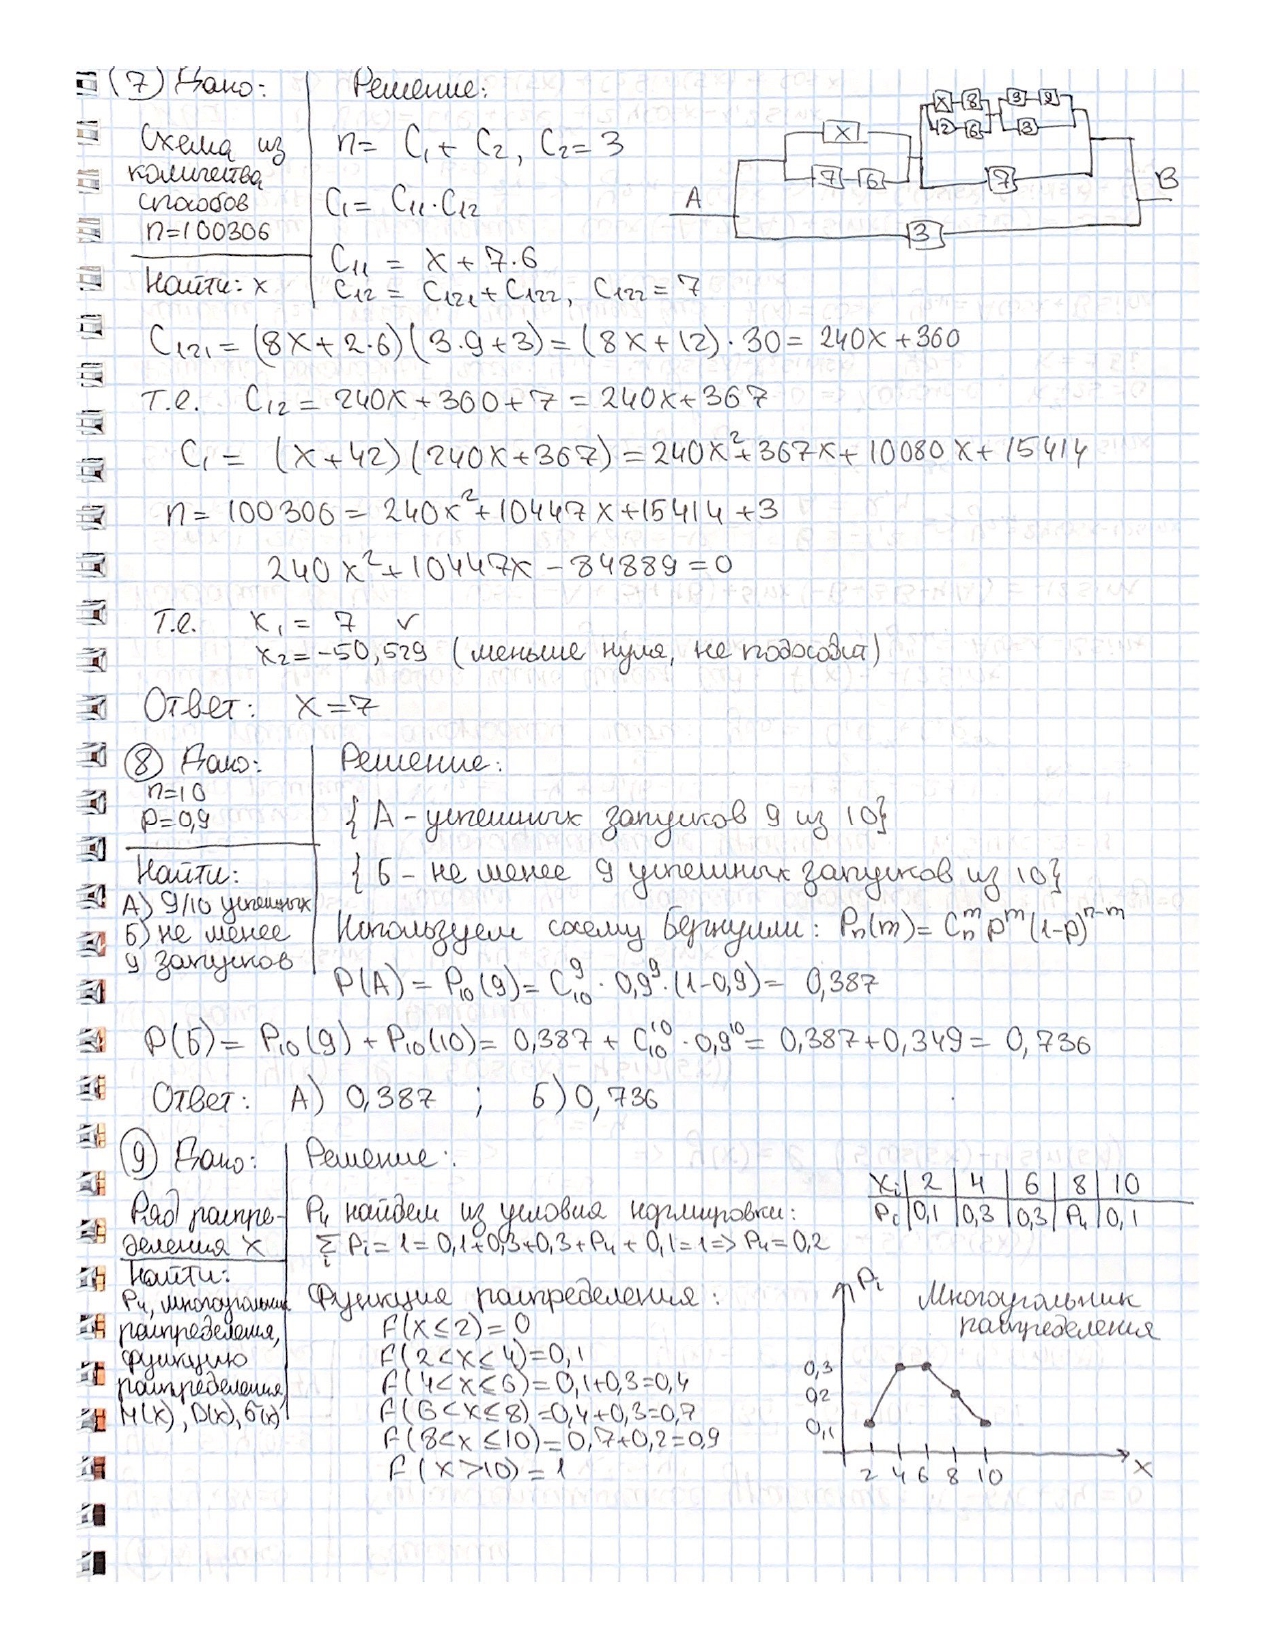 (7) Дано: Решение:
Схема из
количества
способов
n=100306
Найти: x
n = C₁ + C₂, C₂ = 3
C₁ = C₁₁·C₁₂
C₁₁ = x + 7·6
C₁₂ = C₁₂₁ + C₁₂₂, C₁₂₂ = 7
A
x
7 6
x 8 9 2
42 6 3
7
3
B
C₁₂₁ = (8x + 2·6)(3·9+3) = (8x+12)·30 = 240x + 360
т.е. C₁₂ = 240x + 360 + 7 = 240x + 367
C₁ = (x+42)(240x+367) = 240x² + 367x + 10080x + 15414
n = 100306 = 240x² + 10447x + 15414 + 3
240x² + 10447x − 84889 = 0
т.е. x₁ = 7 ✓
x₂ = −50,529 (меньше нуля, не подходит)
Ответ: x = 7
(8) Дано: Решение:
n=10
p=0,9
Найти:
А) 9/10 успешных
Б) не менее
9 запусков
{А - успешных запусков 9 из 10}
{Б - не менее 9 успешных запусков из 10}
Используем схему Бернулли: Pₙ(m) = Cₙᵐ pᵐ (1-p)ⁿ⁻ᵐ
P(А) = P₁₀(9) = C₁₀⁹ · 0,9⁹ · (1-0,9) = 0,387
P(Б) = P₁₀(9) + P₁₀(10) = 0,387 + C₁₀¹⁰ · 0,9¹⁰ = 0,387 + 0,349 = 0,736
Ответ: А) 0,387 ; Б) 0,736
(9) Дано: Решение:
Ряд распре-
деления X
Найти:
P₄, многоугольник
распределения,
функцию
распределения,
M(x), D(x), σ(x)
P₄ найдем из условия нормировки:
Σᵢ Pᵢ = 1 = 0,1+0,3+0,3+P₄+0,1 = 1 => P₄ = 0,2
Xᵢ 2 4 6 8 10
Pᵢ 0,1 0,3 0,3 P₄ 0,1
Функция распределения:
F(x ≤ 2) = 0
F(2 < x ≤ 4) = 0,1
F(4 < x ≤ 6) = 0,1+0,3 = 0,4
F(6 < x ≤ 8) = 0,4+0,3 = 0,7
F(8 < x ≤ 10) = 0,7+0,2 = 0,9
F(x > 10) = 1
Pᵢ
Многоугольник
распределения
0,3
0,2
0,1
2 4 6 8 10
x